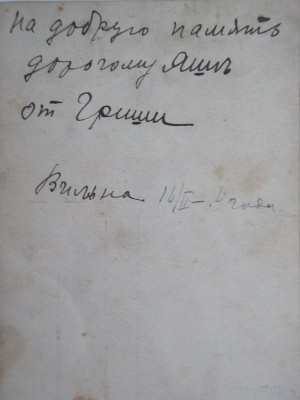 На добрую память
дорогому Яшѣ
от Гриши
Вильна 16/II – года.